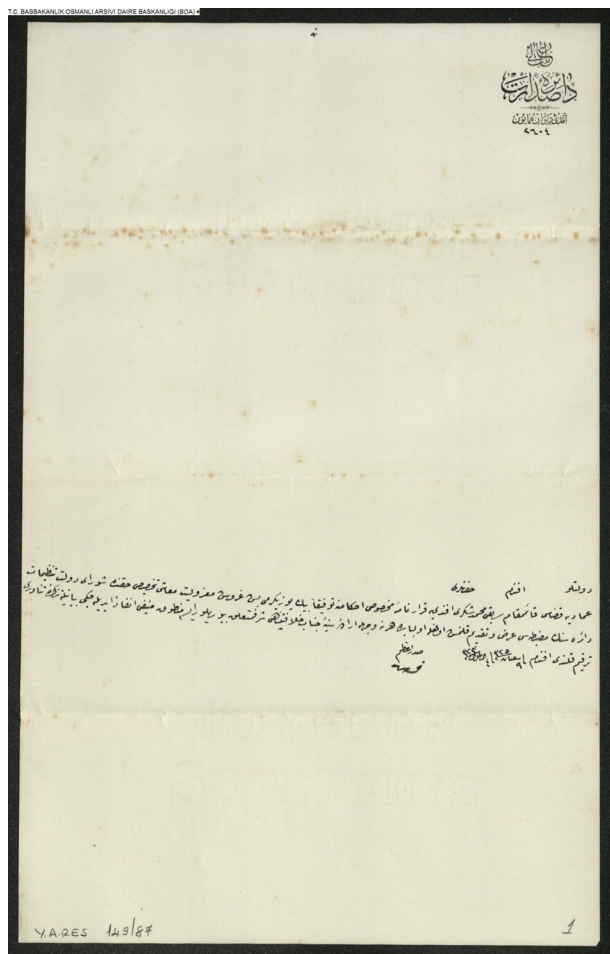 T.C. BASBAKANLIK OSMANLI ARSIVI DAIRE BASKANLIGI (BOA)
باب عالی
دائرهٔ صدارت
آمدی دیوان همایون
٢٦٠٤
دولتلو افندم حضرتلری
عمادیه قضاسی قائممقام سابقی محمد شکری افندی یه قرارنامهٔ مخصوصی احکامنه توفیقا بیك یوز یکرمی بش غروش معزولیت معاشی تخصیصی حقنده شورای دولت تنظیمات
دائره سنك مضبطه سی عرض و تقدیم قلنمش اولمغله اولبابده هر نه وجهله ارادهٔ سنیهٔ جناب خلافتپناهی شرفمتعلق بیوریلور ایسه منطوق منیفی انفاذ ایدیله جکی بیانیله تذکرهٔ ثناوری
ترقیم قلندی افندم
صدر اعظم
Y.A.RES 149/87
1